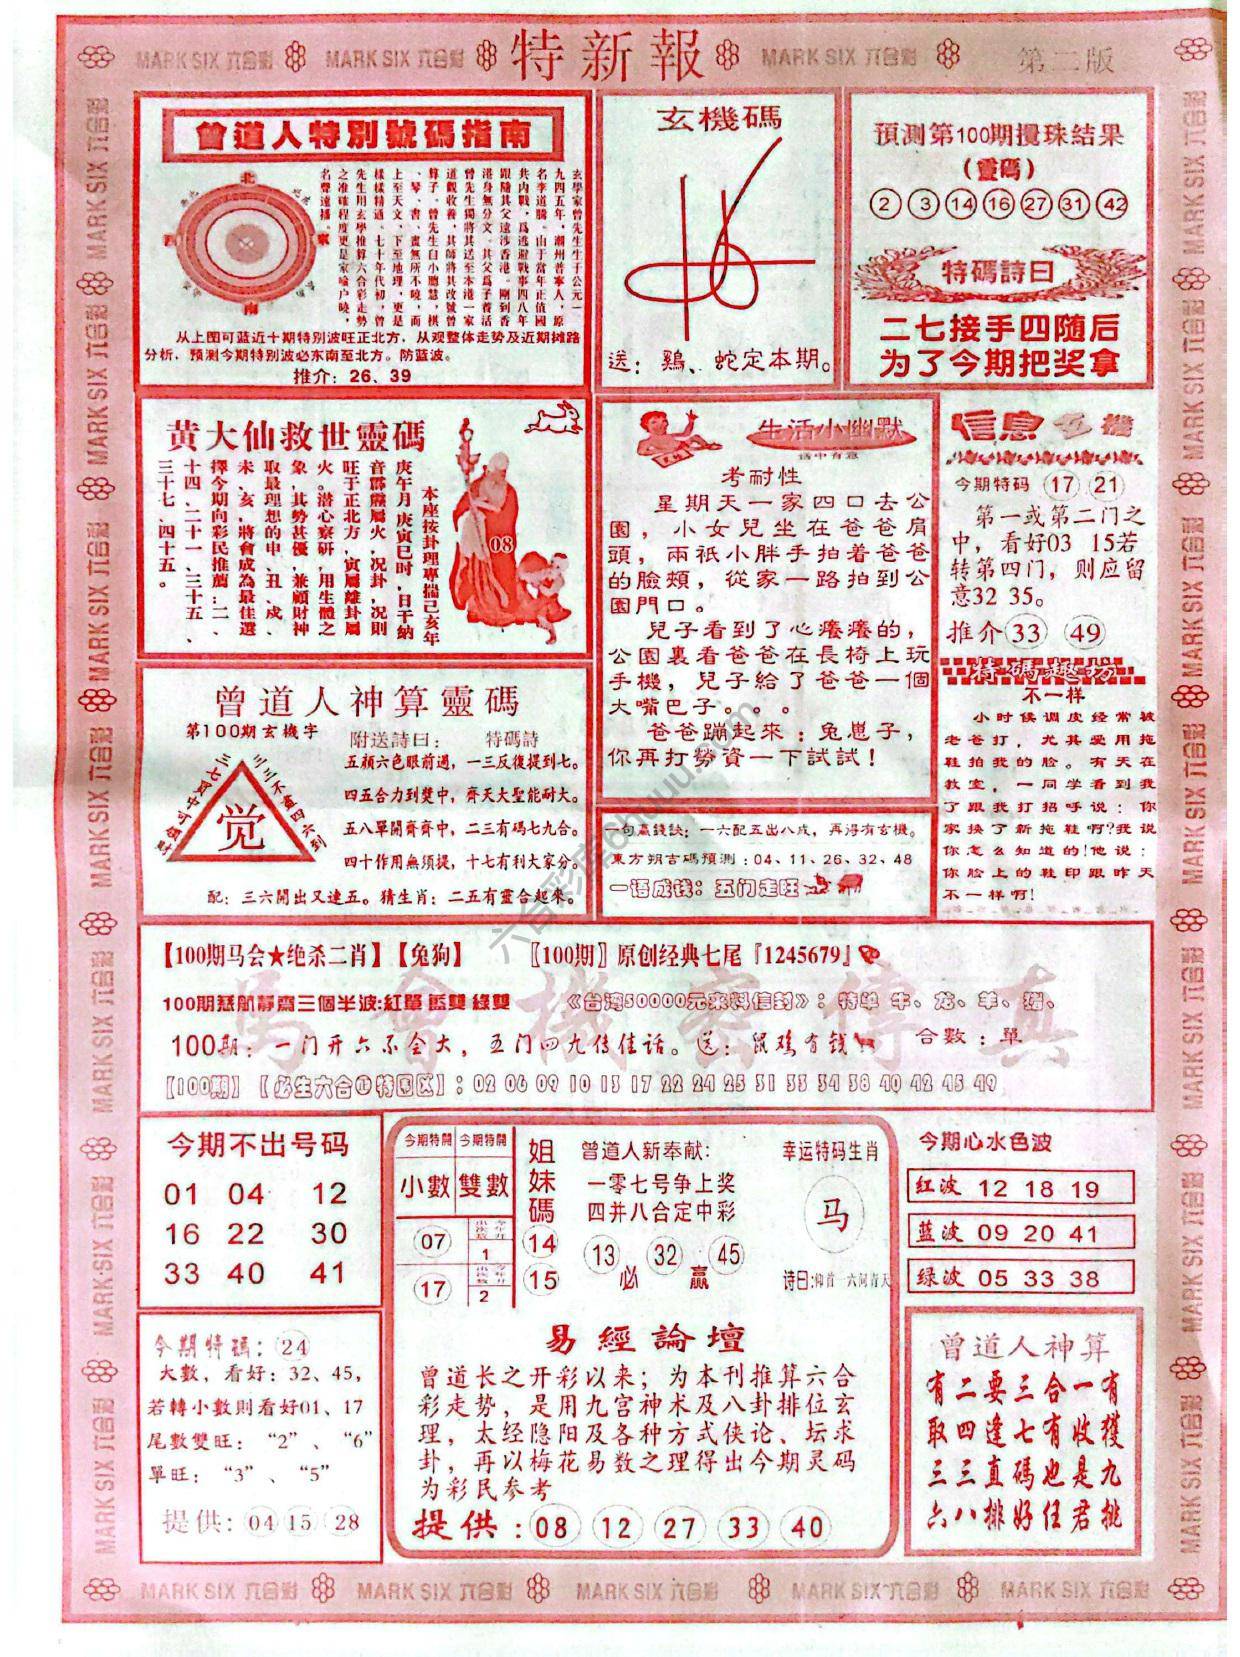 MARK SIX 六合彩
MARK SIX 六合彩
特新報
MARK SIX 六合彩
第二版
曾道人特別號碼指南
北
東
南
西
玄學家曾先生生于公元一
九四五年，潮州普寧人，原
名李道騰。由于當年正值國
共内戰，爲逃避戰事四八年
跟隨其父遠涉香港。剛到香
港身無分文。其父爲了養活
曾先生獨將其送至本港一家
道觀收養，其師將其改號曾
算子。曾先生自小聰慧，棋
、琴、書、畫無所不曉。而
上至天文、下至地理，更是
樣樣精通。七十年代初，曾
先生用玄學推算六合彩走勢
之准確程度更是家喻户曉，
名聲遠播。
从上图可蓝近十期特别波旺正北方，从观整体走势及近期摊路
分析，预测今期特别波必东南至北方。防蓝波。
推介：26、39
玄機碼
送：鷄、蛇定本期。
預測第100期攪珠結果
(靈碼)
2 3 14 16 27 31 42
特碼詩曰
二七接手四随后
为了今期把奖拿
黄大仙救世靈碼
本座按卦理專揣己亥年
庚午月庚寅巳时，日干納
音霹靂屬火，况卦，况則
旺于正北方，寅屬離卦屬
火。潜心察研，用生體之
象，其勢甚優，兼顧財神
取最理想的申、丑、戌、
未、亥，將會成為最佳選
擇今期向彩民推薦：二、
十四、二十一、三十五、
三十七、四十五。
08
生活小幽默
话中有意
考耐性
星期天一家四口去公
園，小女兒坐在爸爸肩
頭，兩祇小胖手拍着爸爸
的臉頰，從家一路拍到公
園門口。
兒子看到了心癢癢的，
公園裏看爸爸在長椅上玩
手機，兒子給了爸爸一個
大嘴巴子。。。
爸爸蹦起來：兔崽子，
你再打勞資一下試試！
信息玄機
今期特码 17 21
第一或第二门之
中，看好03 15若
转第四门，则应留
意32 35。
推介 33 49
特碼趣坊
不一样
小时候调皮经常被
老爸打，尤其爱用拖
鞋拍我的脸。有天在
教室，一同学看到我
了跟我打招呼说：你
家换了新拖鞋啊?我说
你怎么知道的!他说：
你脸上的鞋印跟昨天
不一样啊!
曾道人神算靈碼
第100期玄機字
附送詩曰： 特碼詩
觉
五顔六色眼前過，一三反復提到七。
四五合力到獎中，齊天大聖能耐大。
五八單開齊齊中，二三有碼七九合。
四十作用無須提，十七有利大家分。
配：三六開出又連五。猜生肖：二五有靈合起來。
一句贏錢訣：一六配五出八戌，再得有玄機。
東方朔吉碼預測：04、11、26、32、48
一语成钱：五门走旺
六合彩库6huuu.com
【100期马会★绝杀二肖】【兔狗】
〖100期〗原创经典七尾『1245679』
100期慈航靜齋三個半波:紅單 藍雙 綠雙
《台湾50000元來料信封》：特单 牛、龙、羊、猪、
馬會機密傳真
100期：一门开六不全大，五门四九传佳话。送：鼠鸡有钱
合數：單
【100期】【必生六合①特围区】：02 06 09 10 13 17 22 24 25 31 33 34 38 40 42 45 49
今期不出号码
01 04 12
16 22 30
33 40 41
今期特開 今期特開
小數 雙數
07 1
17 2
姐妹碼
14
15
曾道人新奉献：
一零七号争上奖
四并八合定中彩
13 32 45
必 赢
幸运特码生肖
马
诗曰:仰首一六问青天
今期心水色波
红波 12 18 19
蓝波 09 20 41
绿波 05 33 38
今期特碼：24
大數，看好：32、45，
若轉小數則看好01、17
尾數雙旺：“2”、“6”
單旺：“3”、“5”
提供：04 15 28
易經論壇
曾道长之开彩以来；为本刊推算六合
彩走势，是用九宫神术及八卦排位玄
理，太经隐阳及各种方式侠论、坛求
卦，再以梅花易数之理得出今期灵码
为彩民参考
提供：08 12 27 33 40
曾道人神算
有二要三合一有
取四逢七有收獲
三三直碼也是九
六八排好任君挑
MARK SIX 六合彩
MARK SIX 六合彩
MARK SIX 六合彩
MARK SIX 六合彩
MARK SIX 六合彩